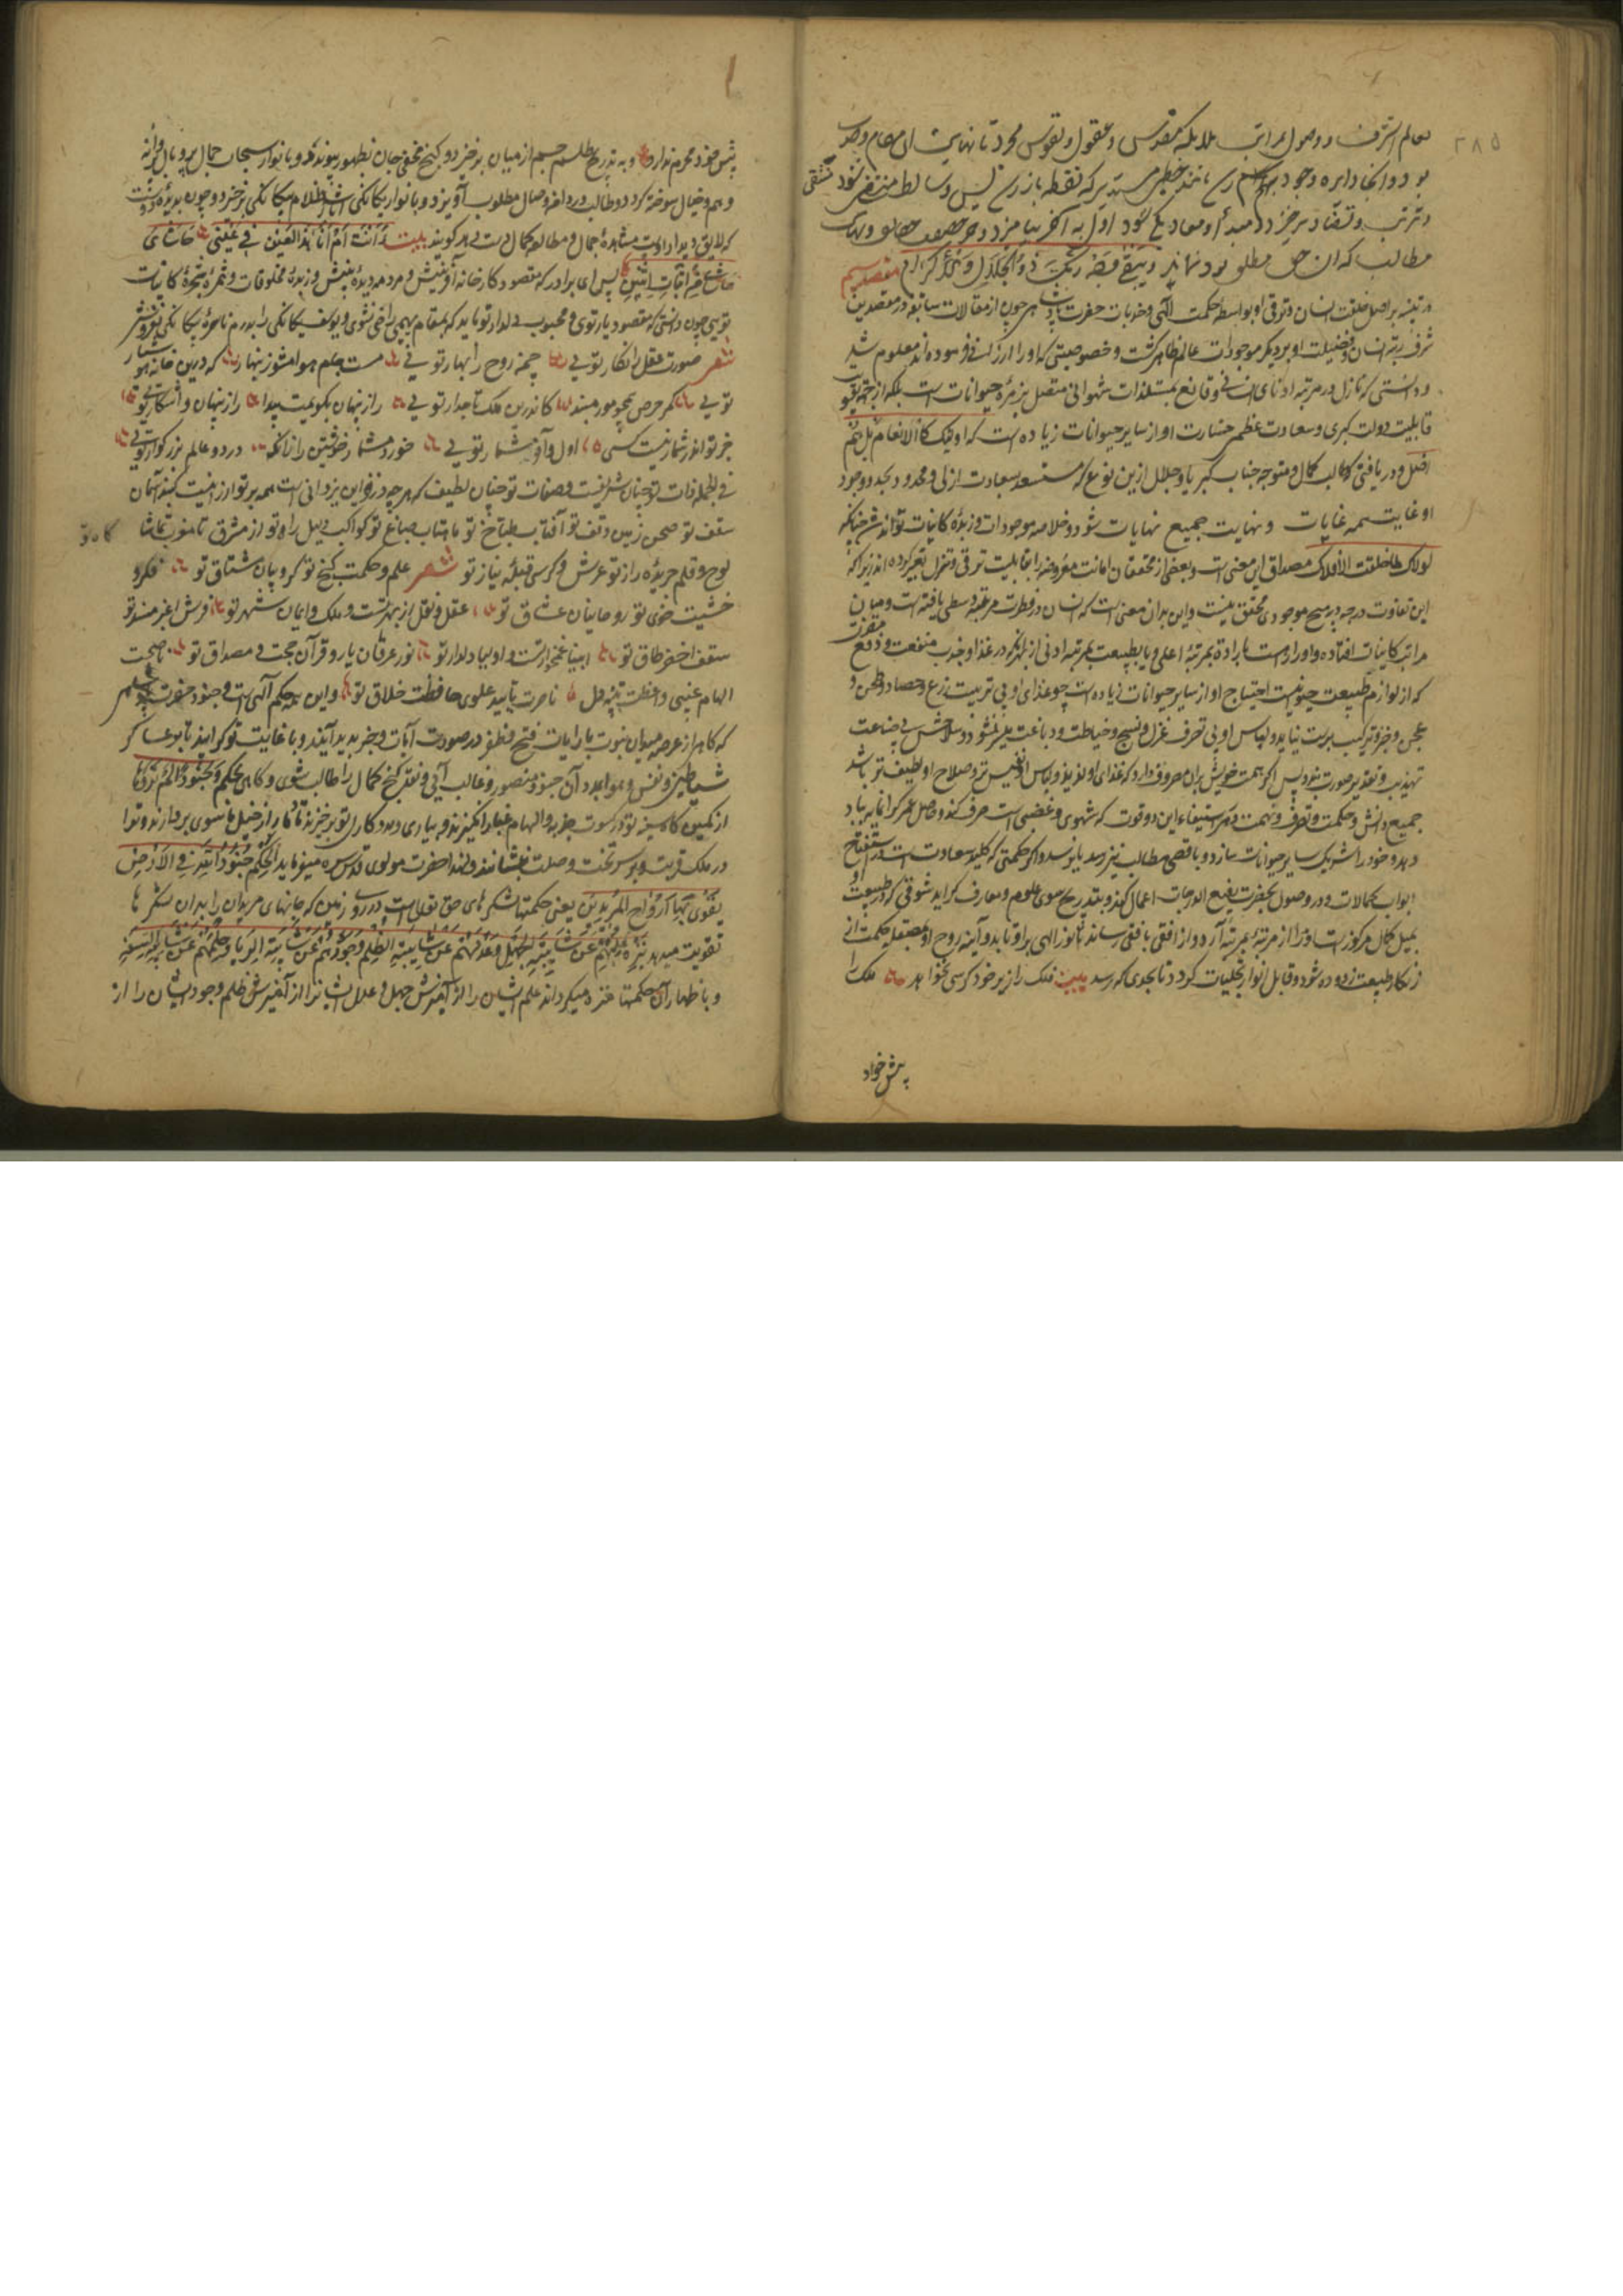 ٢٨٥
بعالم اشرف و وصول بمراتب ملایکه مقدس و عقول و نفوس مجرد تا نهایت آن مقام وحدت
بود و آنجا دایره وجود بهم رسد مانند خط مستدیر که از نقطه باز رسد پس وسایط منتفی شود
و ترتب و تضاد برخیزد و مبدأ و معاد یکی شود حقایق و نهایت
مطالب که آن حق مطلق بود نماند و یبقی وجه ربک ذو الجلال و الاکرام مقصد سیم
در تنبیه بر اصل خلقت انسان و ترقی او بواسطه حکمت الهی و جذبات حضرت هر چون از مقالات سابقه در مقصدین
شرف رتبه انسان و فضیلت او بر دیگر موجودات عالم ظاهر گشت و خصوصیتی که او را ارزانی فرموده اند معلوم شد
و دانستی که نازل در مرتبه ادنای انسانی و قانع بمستلذات شهوانی متصل بزمره حیوانات است بلکه از جهت
قابلیت دولت کبری و سعادت عظمی خسارت او از سایر حیوانات زیاده است که اولئک کالانعام بل هم
اضل و دریافتی که طالب کمال و متوجه جناب کبریا و جلال ازین نوع که مستعد سعادت ازلی و محدود بحدود وجود
او غایت همه غایات و نهایت جمیع نهایات شود و خلاصه موجودات و زبده کاینات تواند شد چنانکه
لولاک لما خلقت الافلاک مصداق این معنی است و بعضی از محققان امانت معروضه را بقابلیت ترقی و تنزل تعبیر کرده اند زیرا که
این تفاوت درجه در هیچ موجودی محقق نیست و این بدان معنی است که انسان در فطرت مرتبه وسطی یافته است و میان
مراتب کاینات افتاده و او را دست بارادت بمرتبه اعلی و یا بطبیعت بمرتبه ادنی از بهر آنکه در غذا و جذب منفعت و دفع مضرت
که از لوازم طبیعت حیوانیست احتیاج او از سایر حیوانات زیاده است چو غذای او بی تربیت زرع و حصاد و طحن و
عجن و خبز و ترکیب بدست نیاید و لباس او بی تصرف غزل و نسج و خیاطت و دباغت میسر نشود و سلاحش بی صناعت
تهذیب و تقدیر صورت نبندد پس اگر همت خویش بدان مصروف دارد که غذای او لذیذ و لباس او نفیس تر و صلاح او لطیف تر باشد
جمیع دانش و حکمت و تصرف و نهمت در استیفاء این دو قوت که شهوی و غضبی است صرف کند و حاصل عمر گرانمایه بباد
دهد و خود را شریک سایر حیوانات سازد و باقصی مطالب نیز رسد یا نرسد و اگر حکمتی که کلید سعادت است در استفتاح
ابواب کمالات و در وصول بحضرت رفیع الدرجات اعمال کند و بتدریج سوی علوم و معارف گراید شوقی که در طبیعت او
بمیل کمال مرکوز است او را از مرتبه بمرتبه آرد و از افقی بافقی رساند تا نور الهی برو تابد و آینه روح او بمصقله حکمت از
زنگار طبیعت زدوده شود و قابل انوار تجلیات گردد تا بحدی که رسد بیت فلک را زیر خود کرسی نخواهد ملک را
پیش خود
پیش خود محرم ندارد و بتدریج طلسم جسم از میان برخیزد و گنج مخفی جان بظهور پیوندد و با نوار سبحات جمال پر و بال پروانه
وهم و خیال سوخته گردد و طالب در دامن وصال مطلوب آویزد و بانوار یگانگی آثار ظلام بیگانگی برخیزد و چون بدیده دوست
که لایق دیدار اوست مشاهده جمال و مطالعه کمال دست دهد گویند بیت أأنت ام انا هذا العین فی عینی حاشای
حاشای من اثبات اثنین پس ای برادر که مقصود کارخانه آفرینش و مردمه دیده بینش و زبده مخلوقات و ثمره شجره کاینات
تویی چون دانستی که مقصود یار توی و محبوب دلدار تو باید که بمقام بهیمی راضی نشوی و یوسف یگانگی را بدرم ناسره بیگانگی نفروشی
شعر صورت عقل را نگار تویی چمن روح را بهار تویی مست جام هوا مشو زنهار که درین خانه هوشیار
تویی کمر حرص همچو مور مبند کاندرین ملک تاجدار تویی راز پنهان بگویمت پیدا راز پنهان و آشکار تویی
جز تو اندر شمار نیست کسی اول و آخر شمار تویی خورد مشمار خویشتن را زانکه در دو عالم بزرگوار تویی
فی الجمله ذات تو چنان شریفست و صفات تو چنان لطیف که هر چه در زوایای یزدانی است همه بر تو ارزانیست گنبد آسمان
سقف تو صحن زمین وقف تو آفتاب طباخ تو ماهتاب صباغ تو کواکب دلیل راه تو از مشرق تا مغرب تماشا گاه تو
لوح و قلم جریده راز تو عرش و کرسی قبله نیاز تو شعر علم و حکمت گنج تو کروبیان مشتاق تو فکر و
خشیت خوی تو روحانیان عشاق تو عقل و نقل از بهر تست و ملک و ایمان شهر تو فرش اغبر مسند تو
سقف اخضر طاق تو انبیا غمخوار تست و اولیا دلدار تو نور عرفان یار و قرآن حجت و مصداق تو ناصحت
الهام غیبی واعظت تنبیه دل ناصرت تایید علوی حافظت خلاق تو و این همه حکم الهی است و جنود حضرت
که گاه از عرصه میدان نبوت با رایات فتح و ظفر در صورت آیات و خبر پدید آیند و با غایت تو گرایند تا بر عساکر
شیاطین و نفس و هوا بمدد آن جنود منصور و غالب آیی و نقد گنج کمال را طالب شوی و گاهی بحکم و جنودا لم تروها
از کمین گاه سینه تو در کسوت جذبه و الهام غبار انگیزند و بیاری و مددکاری تو برخیزند تا ترا از خیل ناسوی بردارند و ترا
در ملک قربت و بر سریر تخت وصلت بنشانند و لهذا حضرت مولوی قدس سره میفرماید الحکم جنود الله فی الارض
یقوی بها ارواح المریدین یعنی حکمتها لشکرهای حق تعالی است در روی زمین که جانهای مریدان را بدان لشکرها
تقویت میدهد ینزه علمهم عن شایبة الجهل و عدلهم عن شایبة الظلم و جودهم عن شایبة الریا و حلمهم عن شایبة السفه
و باظهار آن حکمتها منزه میگرداند علم ایشان را از آمیزش جهل و عدل ایشانرا از آمیزش ظلم وجود ایشان را از